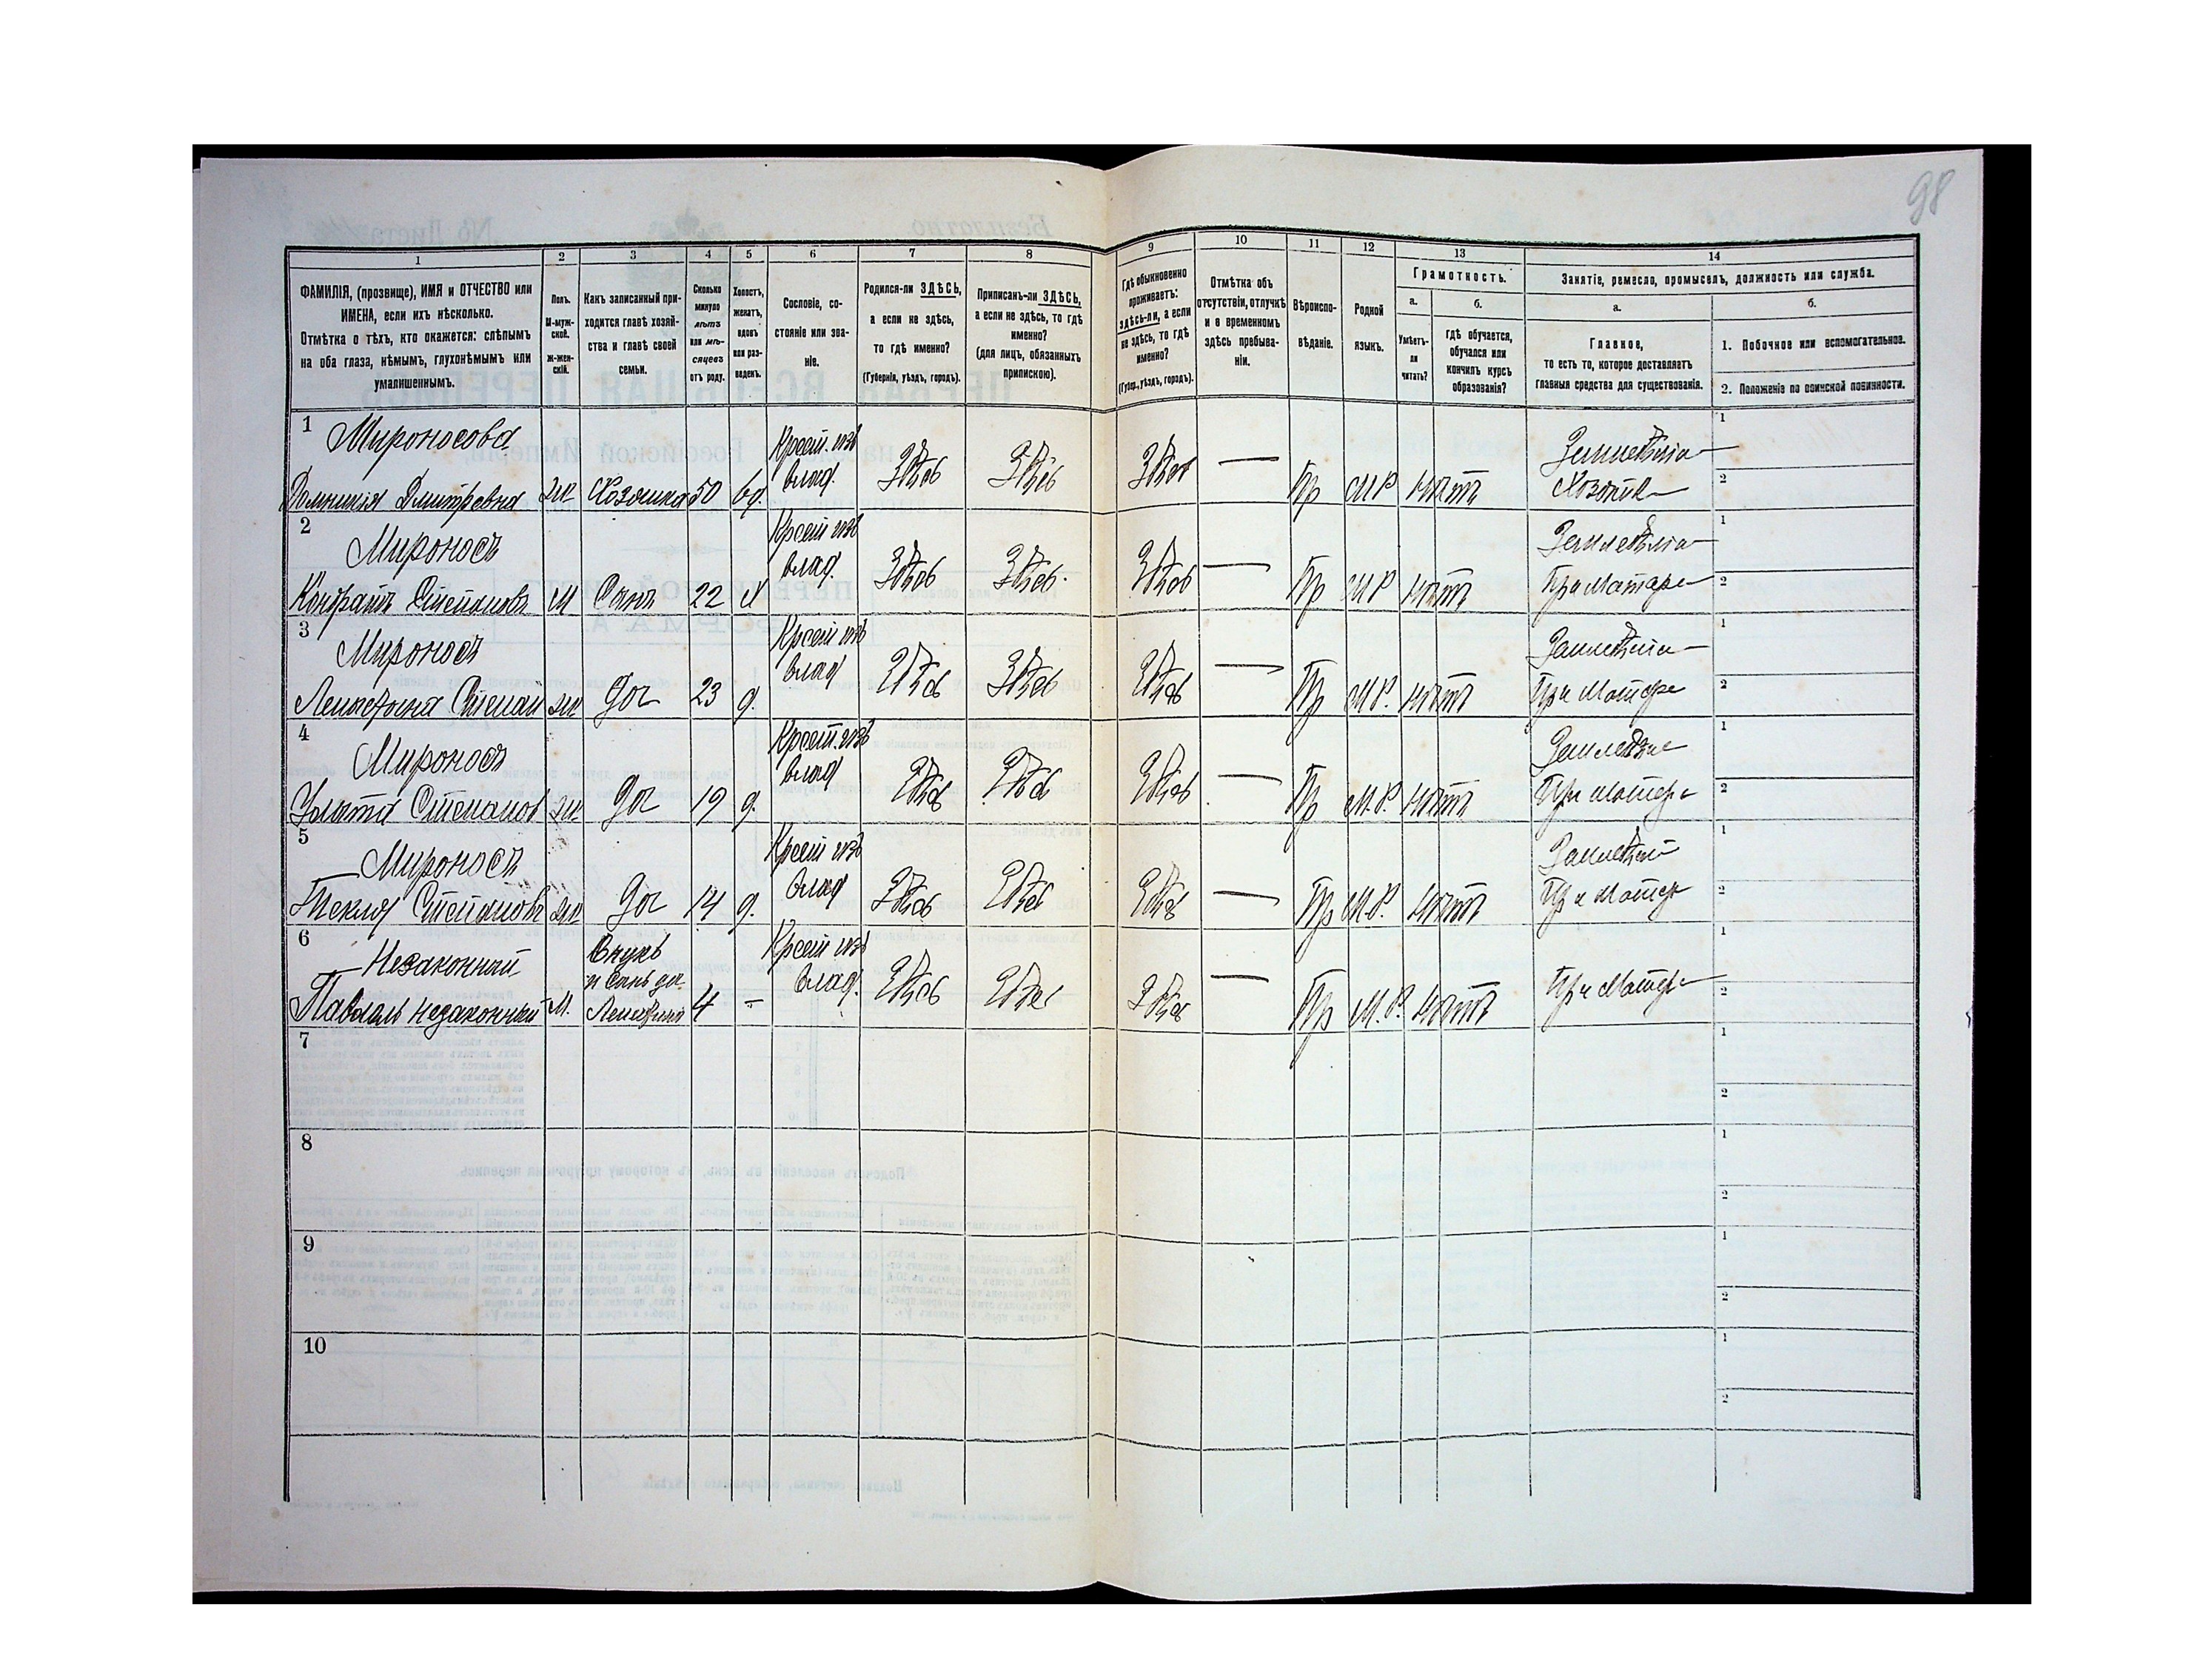 98
1 2 3 4 5 6 7 8 9 10 11 12 13 14
ФАМИЛІЯ, (прозвище), ИМЯ и ОТЧЕСТВО или
ИМЕНА, если ихъ нѣсколько.
Отмѣтка о тѣхъ, кто окажется: слѣпымъ
на оба глаза, нѣмымъ, глухонѣмымъ или
умалишеннымъ.
Полъ.
М-муж-
ской.
ж-жен-
скій.
Какъ записанный при-
ходится главѣ хозяй-
ства и главѣ своей
семьи.
Сколько
минуло
лѣтъ
или мѣ-
сяцевъ
отъ роду.
Холостъ,
женатъ,
вдовъ
или раз-
веденъ.
Сословіе, со-
стояніе или зва-
ніе.
Родился-ли ЗДѢСЬ,
а если не здѣсь,
то гдѣ именно?
(Губернія, уѣздъ, городъ).
Приписанъ-ли ЗДѢСЬ,
а если не здѣсь, то гдѣ
именно?
(для лицъ, обязанныхъ
припискою).
Гдѣ обыкновенно
проживаетъ:
здѣсь-ли, а если
не здѣсь, то гдѣ
именно?
(Губер., уѣздъ, городъ).
Отмѣтка объ
отсутствіи, отлучкѣ
и о временномъ
здѣсь пребыва-
ніи.
Вѣроиспо-
вѣданіе.
Родной
языкъ.
Грамотность.
а.
Умѣетъ-
ли
читать?
б.
Гдѣ обучается,
обучался или
кончилъ курсъ
образованія?
Занятіе, ремесло, промыселъ, должность или служба.
а.
Главное,
то есть то, которое доставляетъ
главныя средства для существованія.
б.
1. Побочное или вспомогательное.
2. Положеніе по воинской повинности.
1 Мироносова Крест. изъ 1
влад. Здѣсь Здѣсь Здѣсь — 2
Дмитревна ж Хозяика 50 вд. Пр М Р нѣтъ
2 Мироносъ Крест изъ 1
влад. Здѣсь Здѣсь Здѣсь — При Матере 2
Кондратъ Степановъ М Сынъ 22 х Пр М Р нѣтъ
3 Мироносъ Крест изъ 1
влад Здѣсь Здѣсь Здѣсь — При Матере 2
Степан ж доч 23 д. Пр М Р. нѣтъ
4 Мироносъ Крест. изъ 1
влад Здѣсь Здѣсь Здѣсь — При матере 2
Степанов ж доч 19 д. Пр М. Р. нѣтъ
5 Мироносъ Крест изъ 1
влад Здѣсь Здѣсь Здѣсь — При Матер 2
Текля Степановъ ж доч 14 д. Пр М. Р. нѣтъ
6 Незаконный Внукъ Крест изъ 1
и Сынъ до. влад. Здѣсь Здѣсь Здѣсь — При Матере 2
незаконный М. 4 — Пр М. Р. нѣтъ
7 1
2
8 1
2
9 1
2
10 1
2